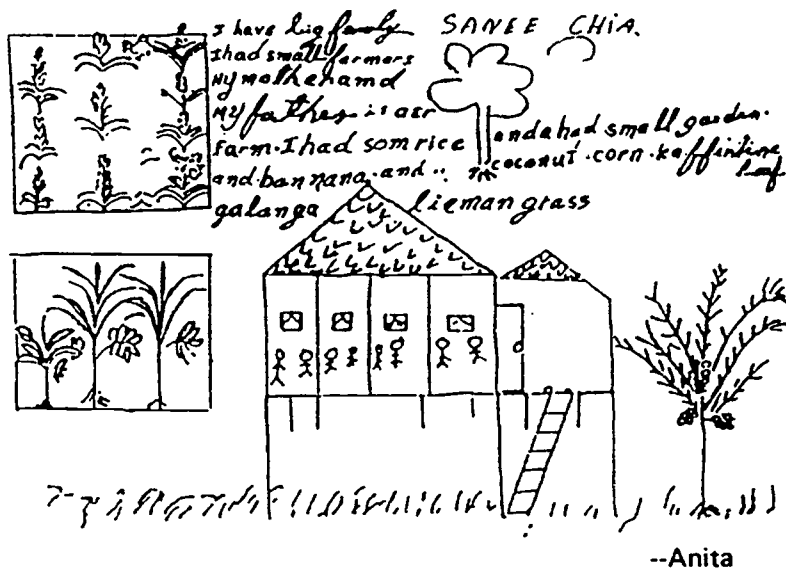 SANEE CHIA.
I have big family
I had small farmers
My mother amd
My father is air
Farm. I had som rice
and bannana. and ..
galanga liemangrass
anda had small garden.
coconut. corn. kaffirline
leaf
--Anita